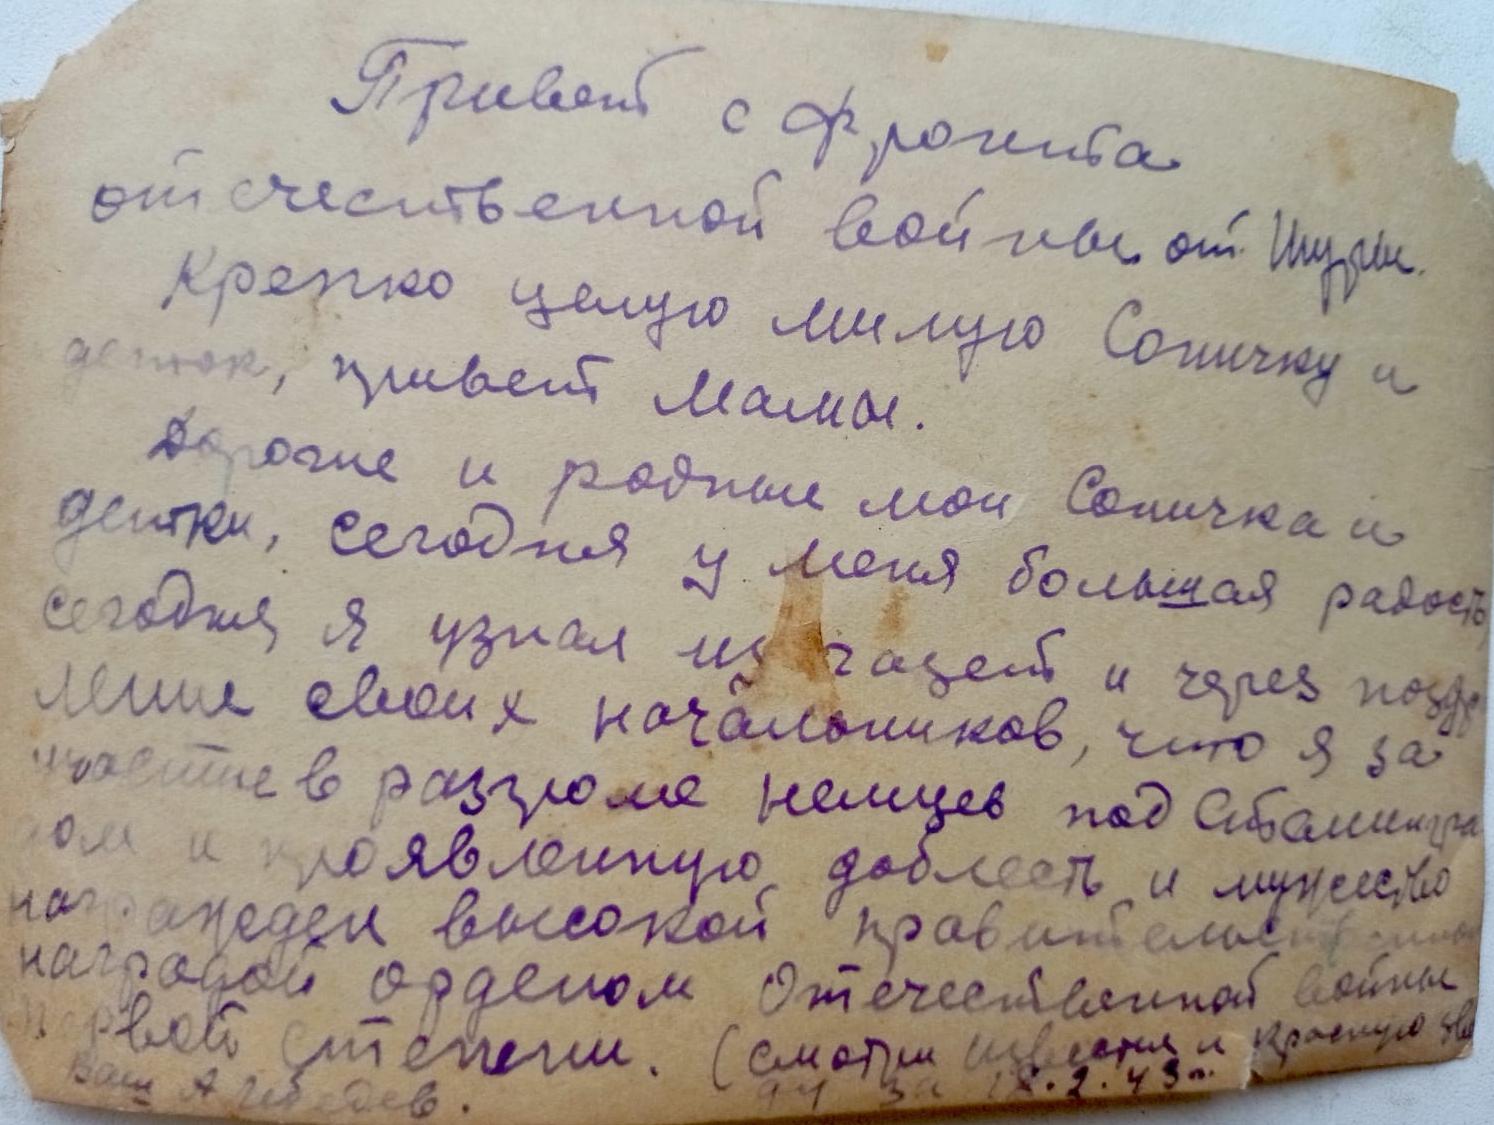 Привет с фронта
отечественной войны от Шуры.
Крепко целую милую Соничку и
деток, привет Мамы.
Дорогие и родные мои Соничка и
детки, сегодня у меня большая радость,
сегодня я узнал из газет и через поздр
ление своих начальников, что я за
участие в разгроме немцев под Сталингра
дом и проявленную доблесть и мужество
награжден высокой правительственной
наградой орденом Отечественной войны
первой степени. (смотри Известия и Красную зве
Ваш А Лебедев. за 2.43г.